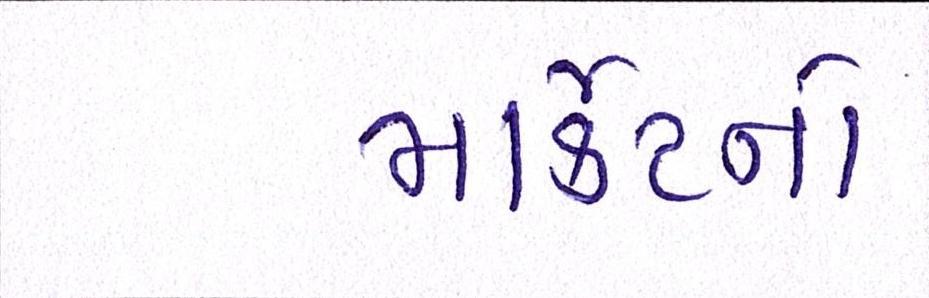 માર્કેટનો